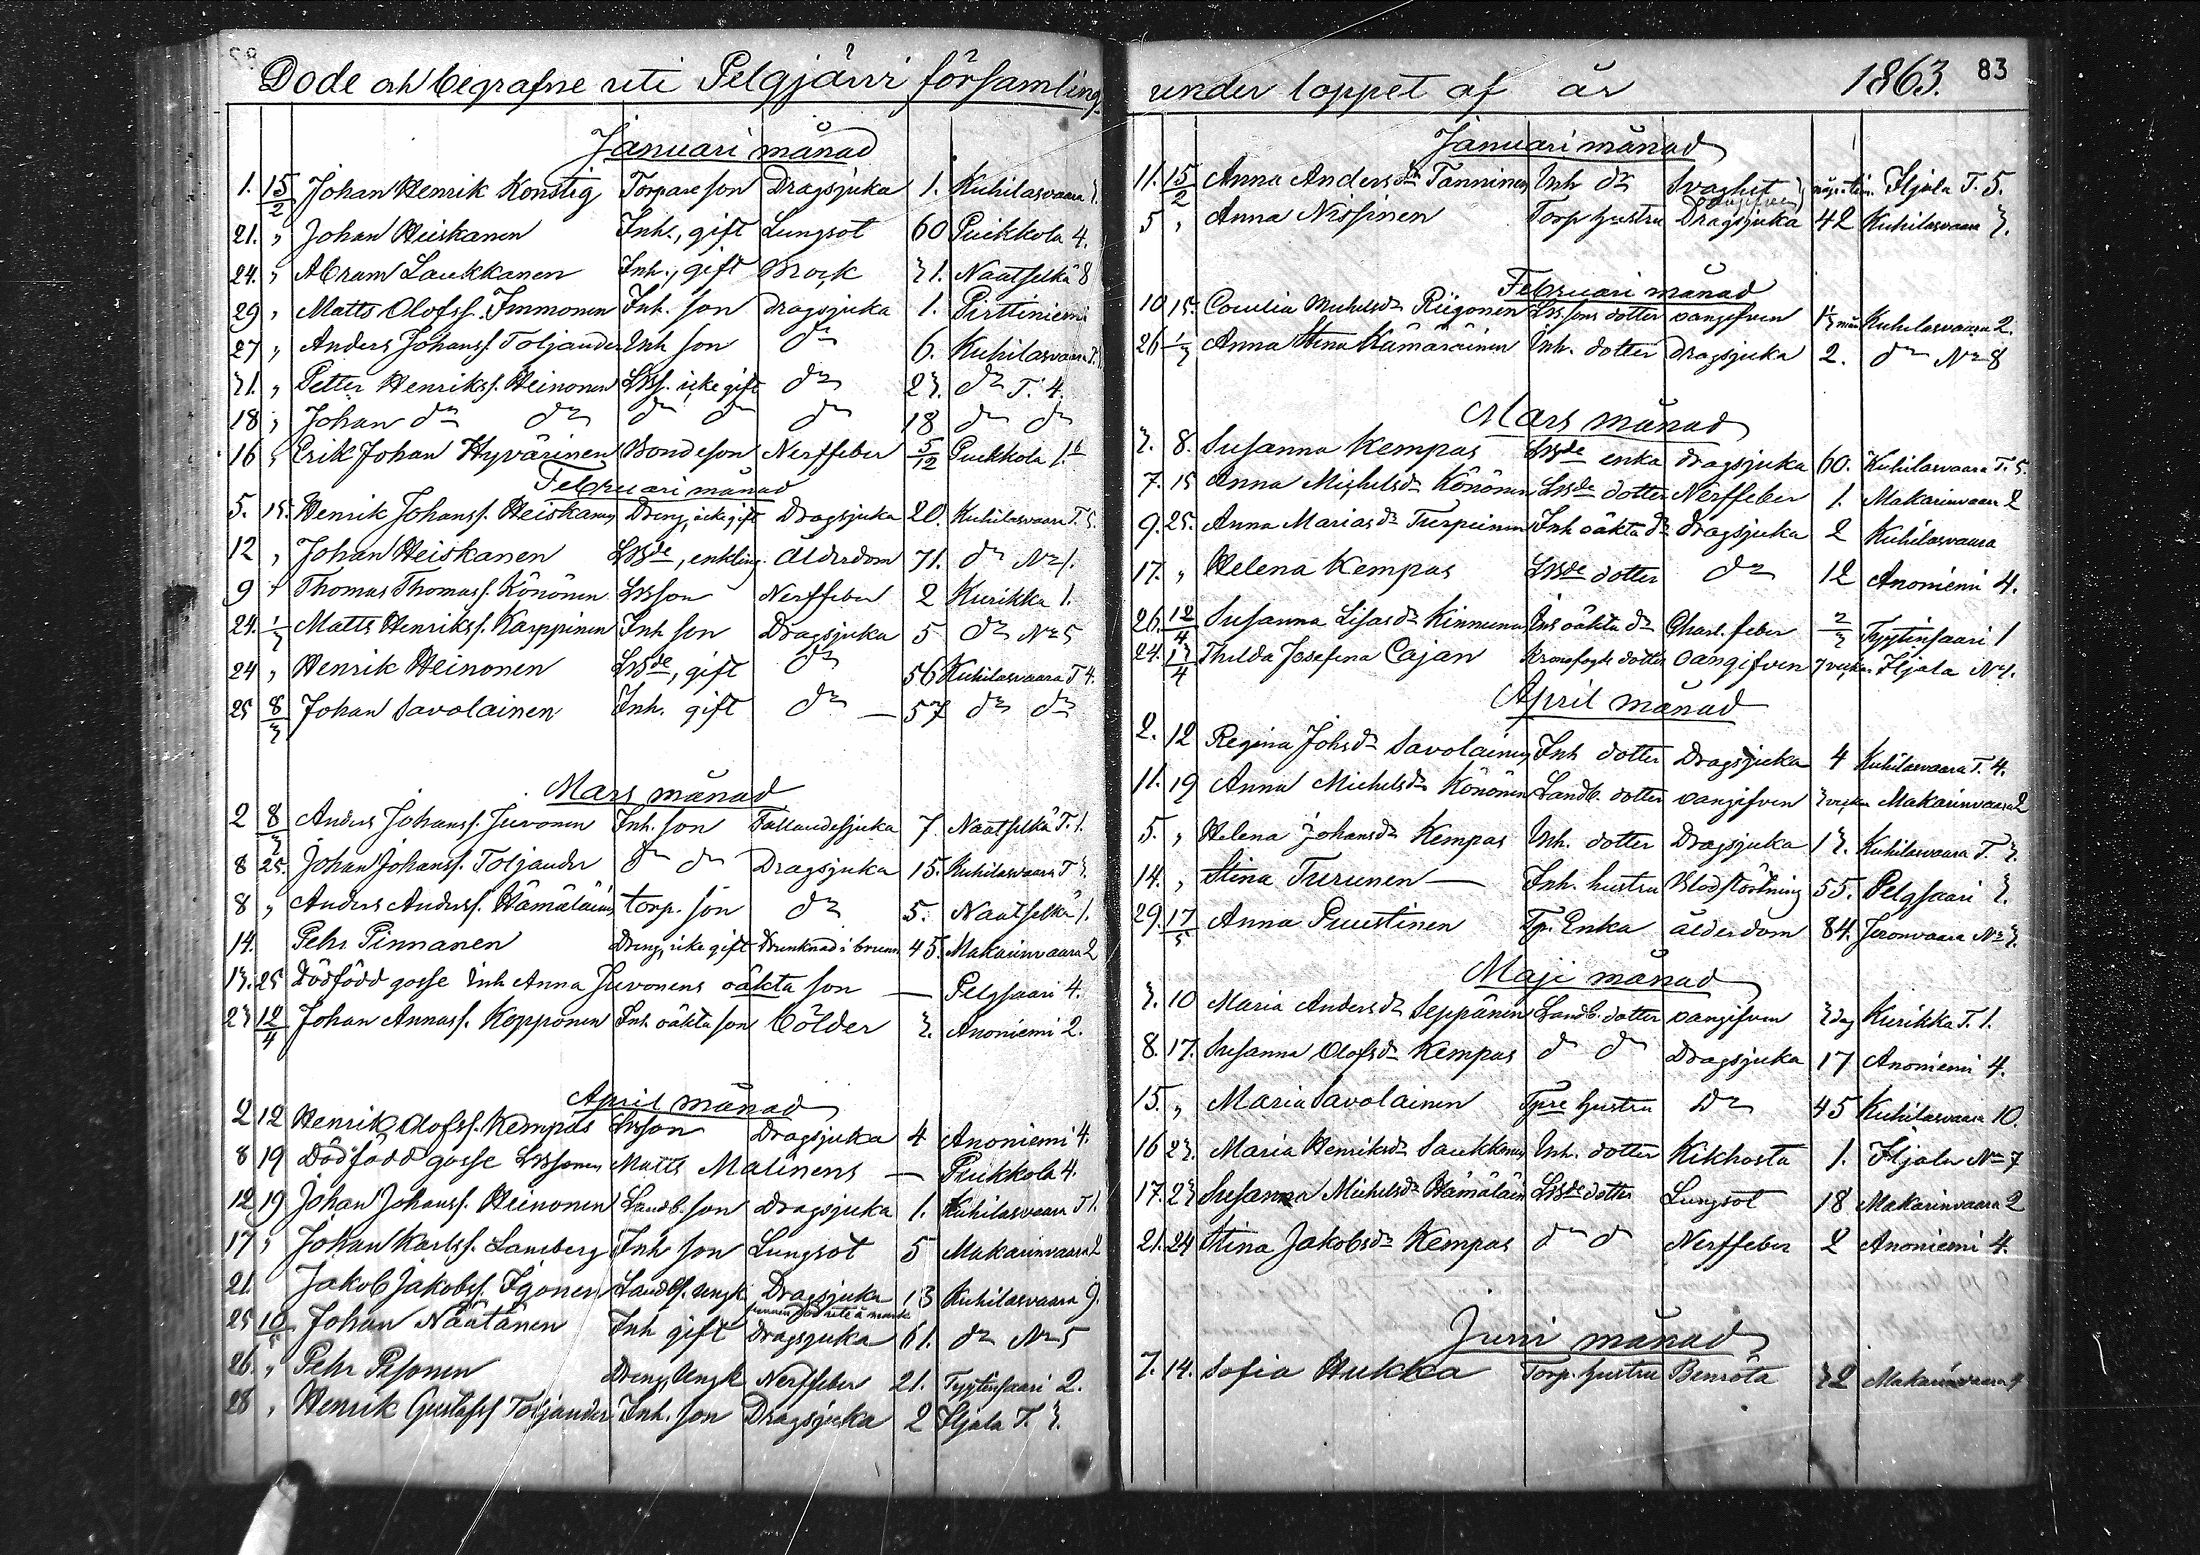 Döde och begrafne uti Pelgjärvi församling
Januari månad
1. 15/2 Johan Henrik Konstig Torpare son Dragsjuka 1. Kuhilasvaara 3.
21. " Johan Heiskanen Inh., gift Lungsot 60 Puikkola 4.
24. " Abram Laukkanen Inh., gift Brock 31. Naatselkä 8
29 " Matts Olofss. Immonen Inh. son dragsjuka 1. Pirttiniemi
27 " Anders Johanss. Toljander Inh son do 6. Kuhilasvaara
31. " Petter Henrikss. Heinonen Lbs. icke gift do 23. do T. 4.
18 " Johan do do do do do 18 do do
16 " Erik Johan Hyvärinen Bondeson Nerffeber 5/12 Puikkola 1.
Februari månad
5. 15. Henrik Johanss. Heiskanen Dreng, icke gift Dragsjuka 20. Kuhilasvaara T. 5.
12 " Johan Heiskanen Lbde, enkling. Ålderdom 71. do No 1.
9 " Thomas Thomass. Könönen Lbson Nerffeber 2 Kurikka 1.
24. 1/3 Matts Henrikss. Karppinen Inh son Dragsjuka 5 do No 5
24 " Henrik Heinonen Lbde, gift do 56 Kuhilasvaara T 4.
25 8/3 Johan Savolainen Inh. gift do — 57 do do
Mars månad
2 8/3 Anders Johanss. Juvonen Inh. son Fallandesjuka 7. Naatselkä T. 1.
8 25. Johan Johanss. Toljander do do Dragsjuka 15. Kuhilasvaara T 3.
8 " Anders Anderss. Hämäläinen torp. son do 5. Naatselkä 1.
14. Pehr Pinnanen Dreng, icke gift Drunknad i brunn 45. Makarinvaara 2
13. 25 Dödfödd gosse Inh Anna Juvonens oäkta son — Pelgsaari 4.
23 12/4 Johan Annass. Kopponen Inh oäkta son bölder 3. Anoniemi 2.
April månad
2 12 Henrik Olofss. Kempas Lbson Dragsjuka 4 Anoniemi 4.
8 19 Dödfödd gosse Lbsonen Matts Malinens — Puikkola 4.
12 19 Johan Johanss. Heinonen Landb. son Dragsjuka 1. Kuhilasvaara T 1.
17 " Johan Karlss. Lansberg Inh son Lungsot 5 Makarinvaara 2
21. Jakob Jakobss. Igonen Landbs. ungk Dragsjuka 13 Kuhilasvaara 9.
funnen död ute å marken
25 10/5 Johan Näätänen Inh gift Dragsjuka 61. do No 5
26. " Pehr Pesonen Dreng, Ungk Nerffeber 21. Tyytinsaari 2.
28 " Henrik Gustafss Toljander Inh. son Dragsjuka 2 Iljala T. 3.
under loppet af år 1863. 83
Januari månad
11. 15/2 Anna Andersdr Tanninen Inh dr Svaghet någ. tim. Iljala T. 5.
5 " Anna Nissinen Torp hustru Dragsjuka 42 Kuhilasvaara 3.
Februari månad
10 15. Cecilia Michelsdr Riigonen Lbs sons dotter oangifven 1 1/3 mån Kuhilasvaara 2.
26 1/3 Anna Stina Kämäräinen Inh. dotter Dragsjuka 2. do No 8
Mars månad
3. 8. Susanna Kempas Lbde enka dragsjuka 60. Kuhilasvaara T. 5.
7. 15 Anna Michelsdr Könönen Lbde dotter Nerffeber 1. Makarinvaara 2
9. 25. Anna Mariasdr Turpeinen Inh oäkta dr dragsjuka 2 Kuhilasvaara
17. " Helena Kempas Lbde dotter do 12 Anoniemi 4.
26. 12/4 Susanna Lisasdr Kinnunen Inh oäkta dr Charl. feber 2/3 Tyytinsaari 1
24. 13/4 Thilda Josefina Cajan Kronofogde dotter Oangifven 7 veckor Iljala No 1.
April månad
2. 12 Regina Johsdr Savolainen Inh dotter Dragsjuka 4 Kuhilasvaara T. 4.
11. 19 Anna Michelsdr Könönen Landb. dotter oangifven 3 veckor Makarinvaara 2
5. " Helena Johansdr Kempas Inh. dotter Dragsjuka 13. Kuhilasvaara T. 3.
14. " Stina Turunen — Inh. hustru Blodstörtning 55. Pelgsaari 3.
29. 17/5 Anna Puustinen Tp. Enka ålderdom 84. Jeronvaara No 3.
Maji månad
3. 10 Maria Andersdr Seppänen Landb. dotter oangifven 3 dag Kurikka T. 1.
8. 17. Susanna Olofsdr Kempas do do Dragsjuka 17 Anoniemi 4.
15. " Maria Savolainen Tpre hustru Do 45 Kuhilasvaara 10.
16 23. Maria Henriksdr Saukkonen Inh. dotter Kikhosta 1. Iljala No 7
17. 23 Susanna Michelsdr Hämäläinen Lbde dotter Lungsot 18 Makarinvaara 2
21. 24 Stina Jakobsdr Kempas do do Nerffeber 2 Anoniemi 4.
Juni månad
7. 14. Sofia Hukka Torp. hustru Benröta 32 Makarinvaara